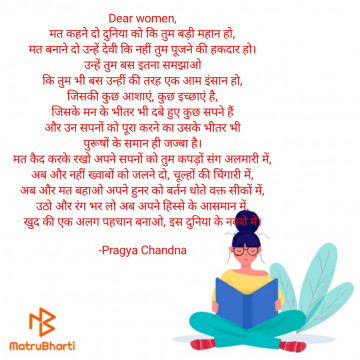 Dear women,
मत कहने दो दुनिया को कि तुम बड़ी महान हो,
मत बनाने दो उन्हें देवी कि नहीं तुम पूजने की हकदार हो।
उन्हें तुम बस इतना समझाओ
कि तुम भी बस उन्हीं की तरह एक आम इंसान हो,
जिसकी कुछ आशाएं, कुछ इच्छाएं है,
जिसके मन के भीतर भी दबे हुए कुछ सपने हैं
और उन सपनों को पूरा करने का उसके भीतर भी
पुरूषों के समान ही जज्बा है।
मत कैद करके रखो अपने सपनों को तुम कपड़ों संग अलमारी में,
अब और नहीं ख्वाबों को जलने दो, चूल्हों की चिंगारी में,
अब और मत बहाओ अपने हुनर को बर्तन धोते वक्त सींकों में,
उठो और रंग भर लो अब अपने हिस्से के आसमान में,
खुद की एक अलग पहचान बनाओ, इस दुनिया के नक्शे में।
-Pragya Chandna
MatruBharti